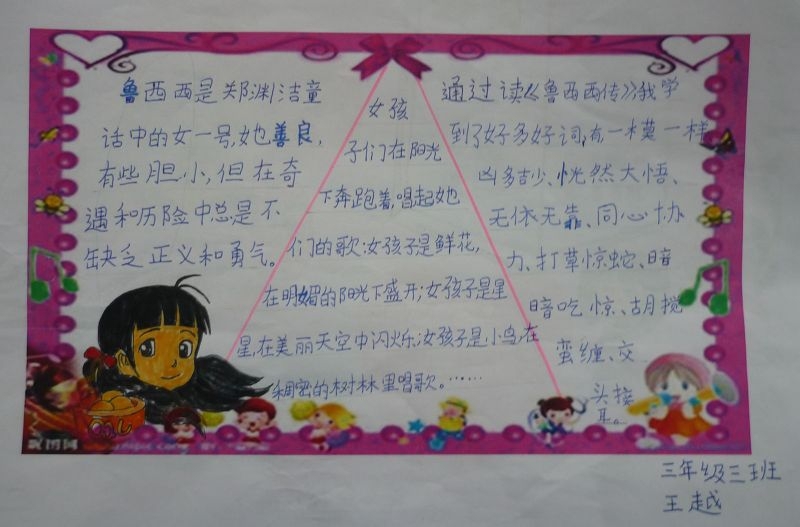 鲁西西是郑渊洁童
话中的女一号,她善良,
有些胆小,但在奇
遇和历险中总是不
缺乏正义和勇气。
女孩
子们在阳光
下奔跑着,唱起她
们的歌;女孩子是鲜花,
在明媚的阳光下盛开;女孩子是星
星,在美丽天空中闪烁;女孩子是小鸟,在
稠密的树林里唱歌。……
通过读《鲁西西传》我学
到了好多好词,有一模一样、
凶多吉少、恍然大悟、
无依无靠、同心协
力、打草惊蛇、暗
暗吃惊、胡搅
蛮缠、交
头接
耳。
昵图网
三年级三班
王越